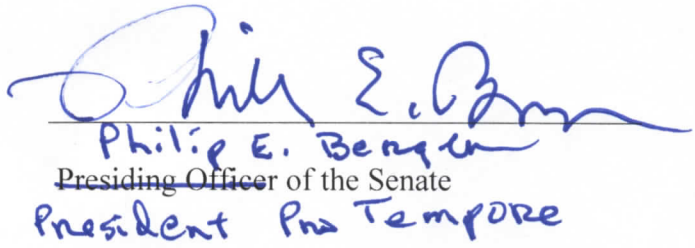 Phil E. Berger
Philip E. Berger
Presiding Officer of the Senate
President Pro Tempore